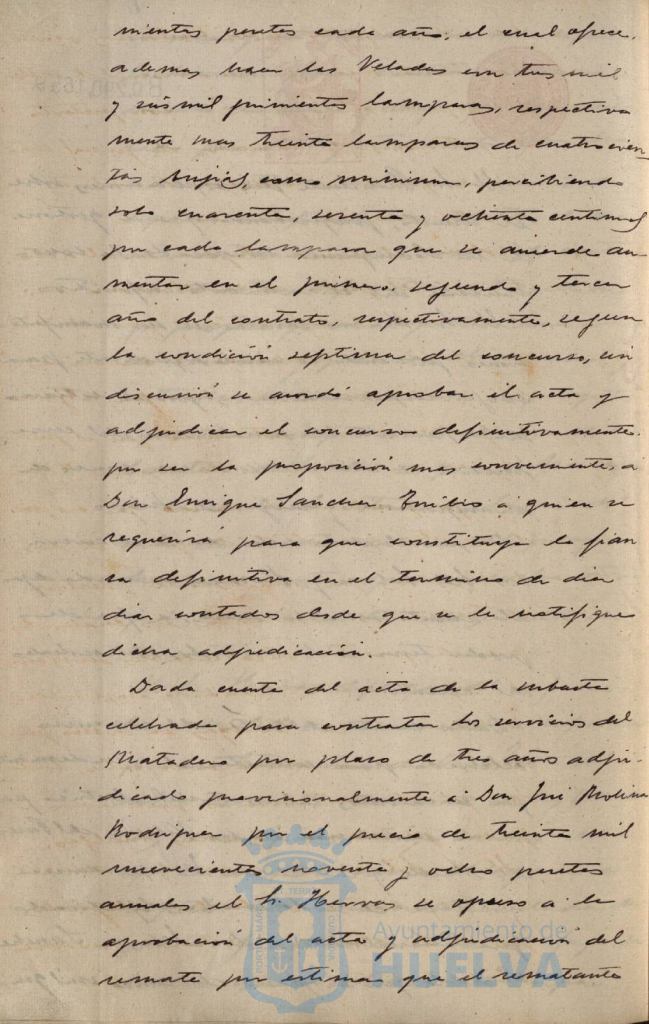 mientas pesetas cada año, el cual ofrece,
ademas hacer las Veladas con tres mil
y seis mil quinientas lamparas, respectiva
mente mas treinta lamparas de cuatrocien-
tas bujias, como minimum, percibiendo
solo cuarenta, sesenta y ochenta centimos
por cada lampara que se acuerde au
mentar en el primero, segundo y tercer
año del contrato, respectivamente, segun
la condición septima del concurso, sin
discusión se acordó aprobar el acta y
adjudicar el concurso definitivamente,
por ser la proposición mas conveniente, a
Don Enrique Sanchez a quien se
requerirá para que constituya la fian
za definitiva en el termino de diez
dias contados desde que se le notifique
dicha adjudicación.
Dada cuenta del acta de la subasta
celebrada para contratar los servicios del
Matadero por plazo de tres años adju-
dicado provisionalmente á Don José Molina
Rodriguez por el precio de treinta mil
novecientas noventa y ocho pesetas
anuales el Sr. Hervas se opuso a la
aprobación del acta y adjudicación del
remate por estimar que el rematante
Ayuntamiento de
HUELVA